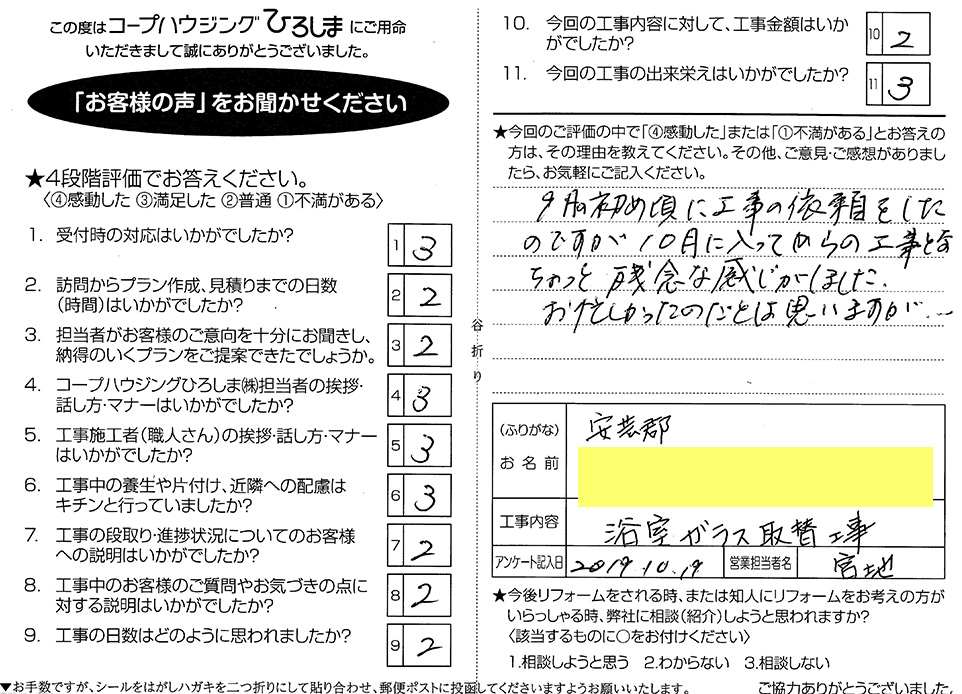 この度はコープハウジングひろしまにご用命
いただきまして誠にありがとうございました。
「お客様の声」をお聞かせください
★4段階評価でお答えください。
〈④感動した ③満足した ②普通 ①不満がある〉
1. 受付時の対応はいかがでしたか?
1 3
2. 訪問からプラン作成、見積りまでの日数
(時間)はいかがでしたか?
2 2
3. 担当者がお客様のご意向を十分にお聞きし、
納得のいくプランをご提案できたでしょうか。
3 2
4. コープハウジングひろしま㈱担当者の挨拶・
話し方・マナーはいかがでしたか?
4 3
5. 工事施工者(職人さん)の挨拶・話し方・マナー
はいかがでしたか?
5 3
6. 工事中の養生や片付け、近隣への配慮は
キチンと行っていましたか?
6 3
7. 工事の段取り・進捗状況についてのお客様
への説明はいかがでしたか?
7 2
8. 工事中のお客様のご質問やお気づきの点に
対する説明はいかがでしたか?
8 2
9. 工事の日数はどのように思われましたか?
9 2
▼お手数ですが、シールをはがしハガキを二つ折りにして貼り合わせ、郵便ポストに投函してくださいますようお願いいたします。
谷折り
10. 今回の工事内容に対して、工事金額はいか
がでしたか?
10 2
11. 今回の工事の出来栄えはいかがでしたか?
11 3
★今回のご評価の中で「④感動した」または「①不満がある」とお答えの
方は、その理由を教えてください。その他、ご意見・ご感想がありまし
たら、お気軽にご記入ください。
9月初め頃に工事の依頼をした
のですが10月に入ってからの工事とな
ちょっと残念な感じがしました.
お忙しかったのだとは思いますが...
(ふりがな)
お名前
安芸郡
工事内容
浴室ガラス取替工事
アンケート記入日
2019.10.19
営業担当者名
宮地
★今後リフォームをされる時、または知人にリフォームをお考えの方が
いらっしゃる時、弊社に相談(紹介)しようと思われますか?
〈該当するものに○をお付けください〉
1.相談しようと思う 2.わからない 3.相談しない
ご協力ありがとうございました。